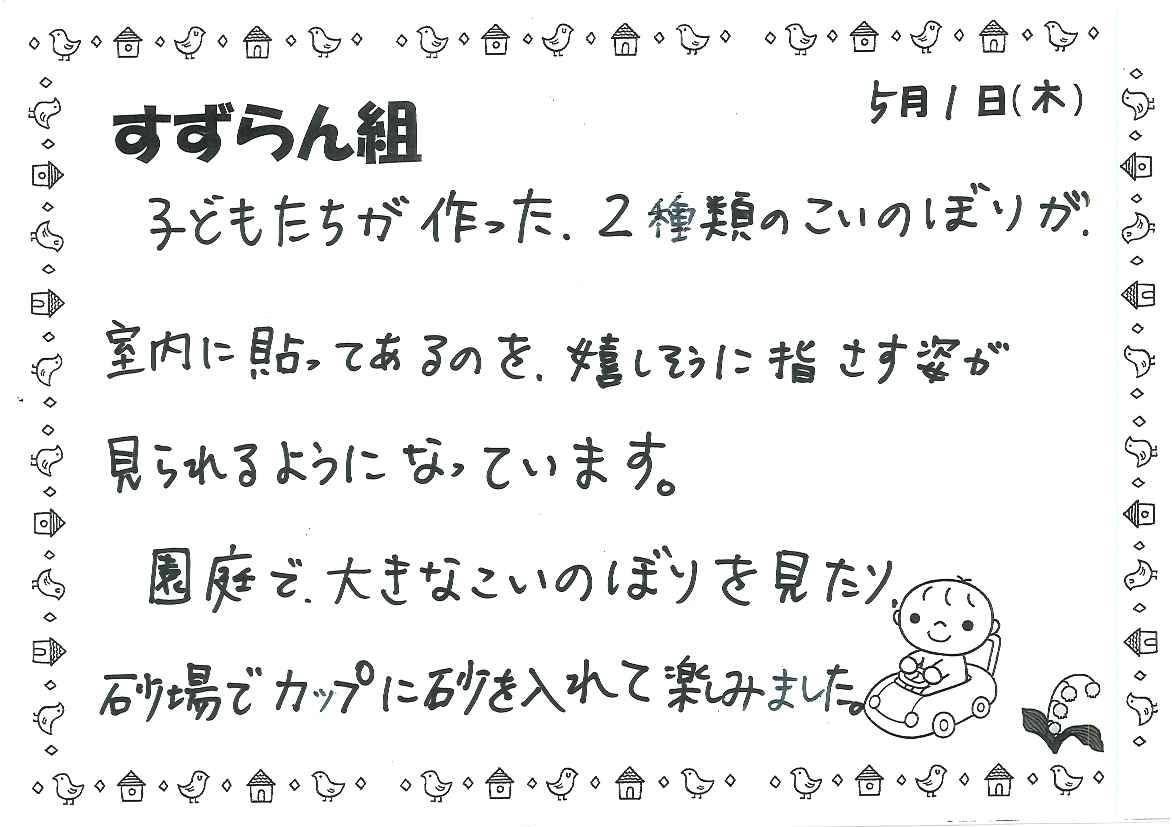 5月1日(木)
すずらん組
子どもたちが作った、2種類のこいのぼりが、
室内に貼ってあるのを、嬉しそうに指さす姿が
見られるようになっています。
園庭で、大きなこいのぼりを見たり、
砂場でカップに砂を入れて楽しみました。